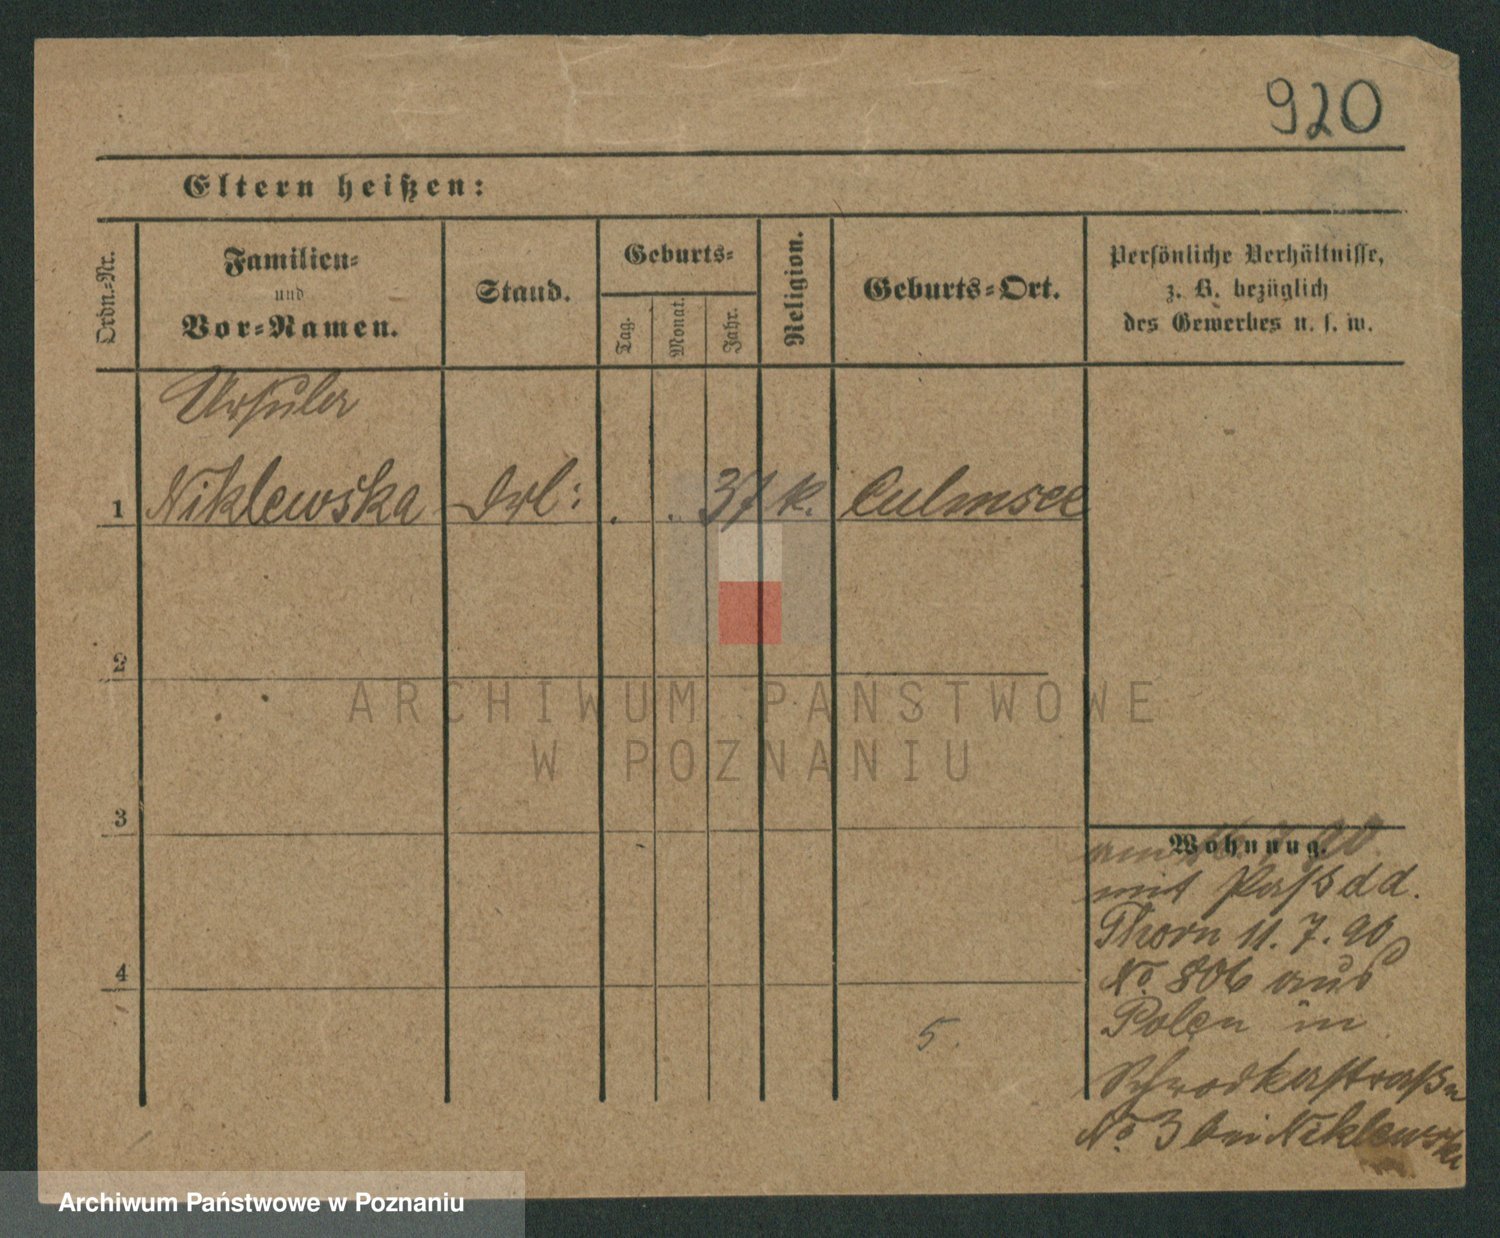 920
Eltern heißen:
Ordn.-Nr.
Familien-
und
Vor-Namen.
Stand.
Geburts-
Tag.
Monat.
Jahr.
Religion.
Geburts-Ort.
Persönliche Verhältnisse,
z. B. bezüglich
des Gewerbes u. s. w.
Ursula
1 Niklewska Frl: . . 37 k. Culmsee
2
3
4
Wohnung.
am 16.7.90.
mit Paß d d.
Thorn 11. 7. 90
No. 806 aus
Polen in
Schrodkastraße
No 3 bei Niklewski
5.
ARCHIWUM PAŃSTWOWE
W POZNANIU
Archiwum Państwowe w Poznaniu